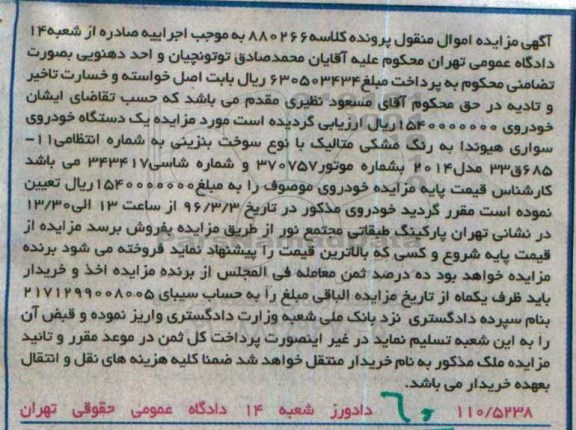 آگهی مزایده اموال منقول پرونده کلاسه۸۸۰۲۶۶ به موجب اجراییه صادره از شعبه۱۴
دادگاه عمومی تهران محکوم علیه آقایان محمدصادق توتونچیان و احد دهنویی بصورت
تضامنی محکوم به پرداخت مبلغ۶۳۰۵۰۳۴۳۴ ریال بابت اصل خواسته و خسارت تاخیر
و تادیه در حق محکوم آقای مسعود نظیری مقدم می باشد که حسب تقاضای ایشان
خودروی ۱۵۴۰۰۰۰۰۰۰ریال ارزیابی گردیده است مورد مزایده یک دستگاه خودروی
سواری هیوندا به رنگ مشکی متالیک با نوع سوخت بنزینی به شماره انتظامی۱۱-
۶۸۵ق۳۳ مدل۲۰۱۴ بشماره موتور۳۷۰۷۵۷ و شماره شاسی۳۴۳۴۱۷ می باشد
کارشناس قیمت پایه مزایده خودروی موصوف را به مبلغ۱۵۴۰۰۰۰۰۰۰ریال تعیین
نموده است مقرر گردید خودروی مذکور در تاریخ ۹۶/۳/۳ از ساعت ۱۳ الی۱۳/۳۰
در نشانی تهران پارکینگ طبقاتی مجتمع نور از طریق مزایده بفروش برسد مزایده از
قیمت پایه شروع و کسی که بالاترین قیمت را پیشنهاد نماید فروخته می شود برنده
مزایده خواهد بود ده درصد ثمن معامله فی المجلس از برنده مزایده اخذ و خریدار
باید ظرف یکماه از تاریخ مزایده الباقی مبلغ را به حساب سیبای ۲۱۷۱۲۹۹۰۰۸۰۰۵
بنام سپرده دادگستری نزد بانک ملی شعبه وزارت دادگستری واریز نموده و قبض آن
را به این شعبه تسلیم نماید در غیر اینصورت پرداخت کل ثمن در موعد مقرر و تائید
مزایده ملک مذکور به نام خریدار منتقل خواهد شد ضمنا کلیه هزینه های نقل و انتقال
بعهده خریدار می باشد.
۱۱۰/۵۲۳۸ دادورز شعبه ۱۴ دادگاه عمومی حقوقی تهران